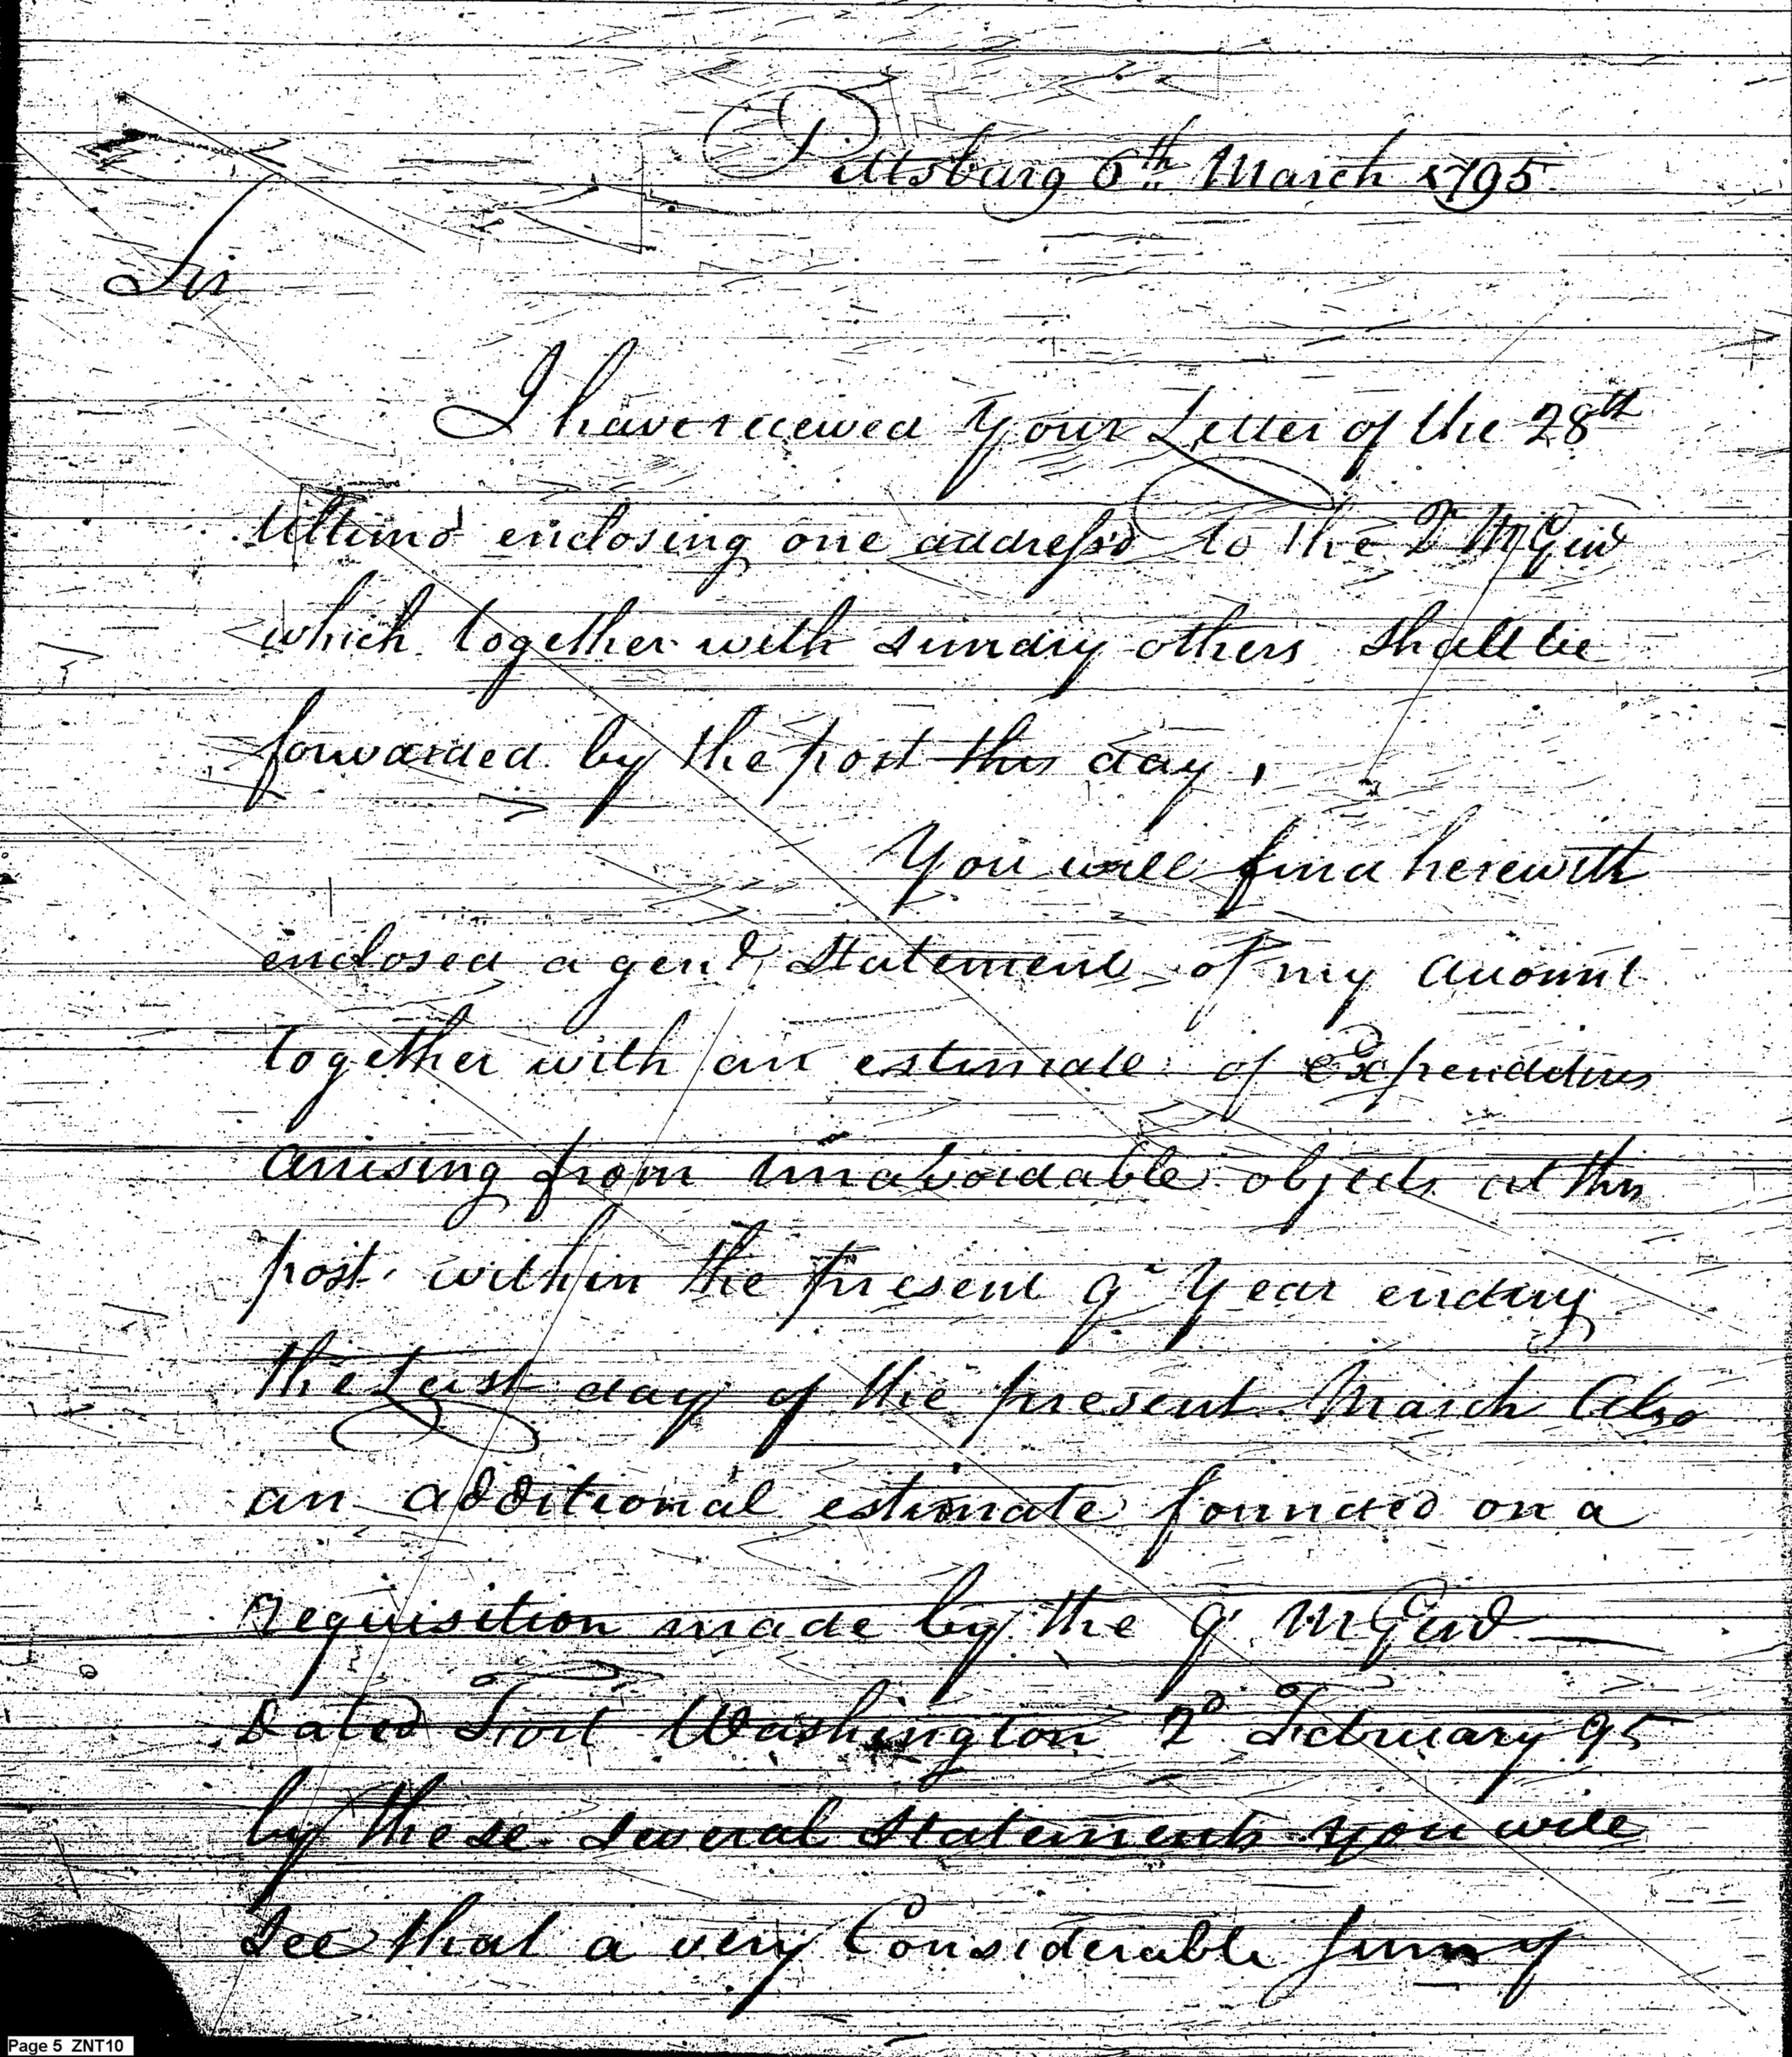 Pittsburg 6th March 1795.
Sir
I have received your Letter of the 28th
Ultimo enclosing one address'd to the Q M Genl
which together with sundry others shall be
forwarded by the post this day,
You will find herewith
enclosed a genl. Statement of my Account
together with an estimate of Expenditures
arrising from unavoidable objects at this
post within the present qr Year ending
the Last day of the present March Also
an additional estimate founded on a
requisition made by the Q. M Genl
Dated Fort Washington 2d February 95
by these several Statements you will
see that a very Considerable Sum of
Page 5 ZNT10